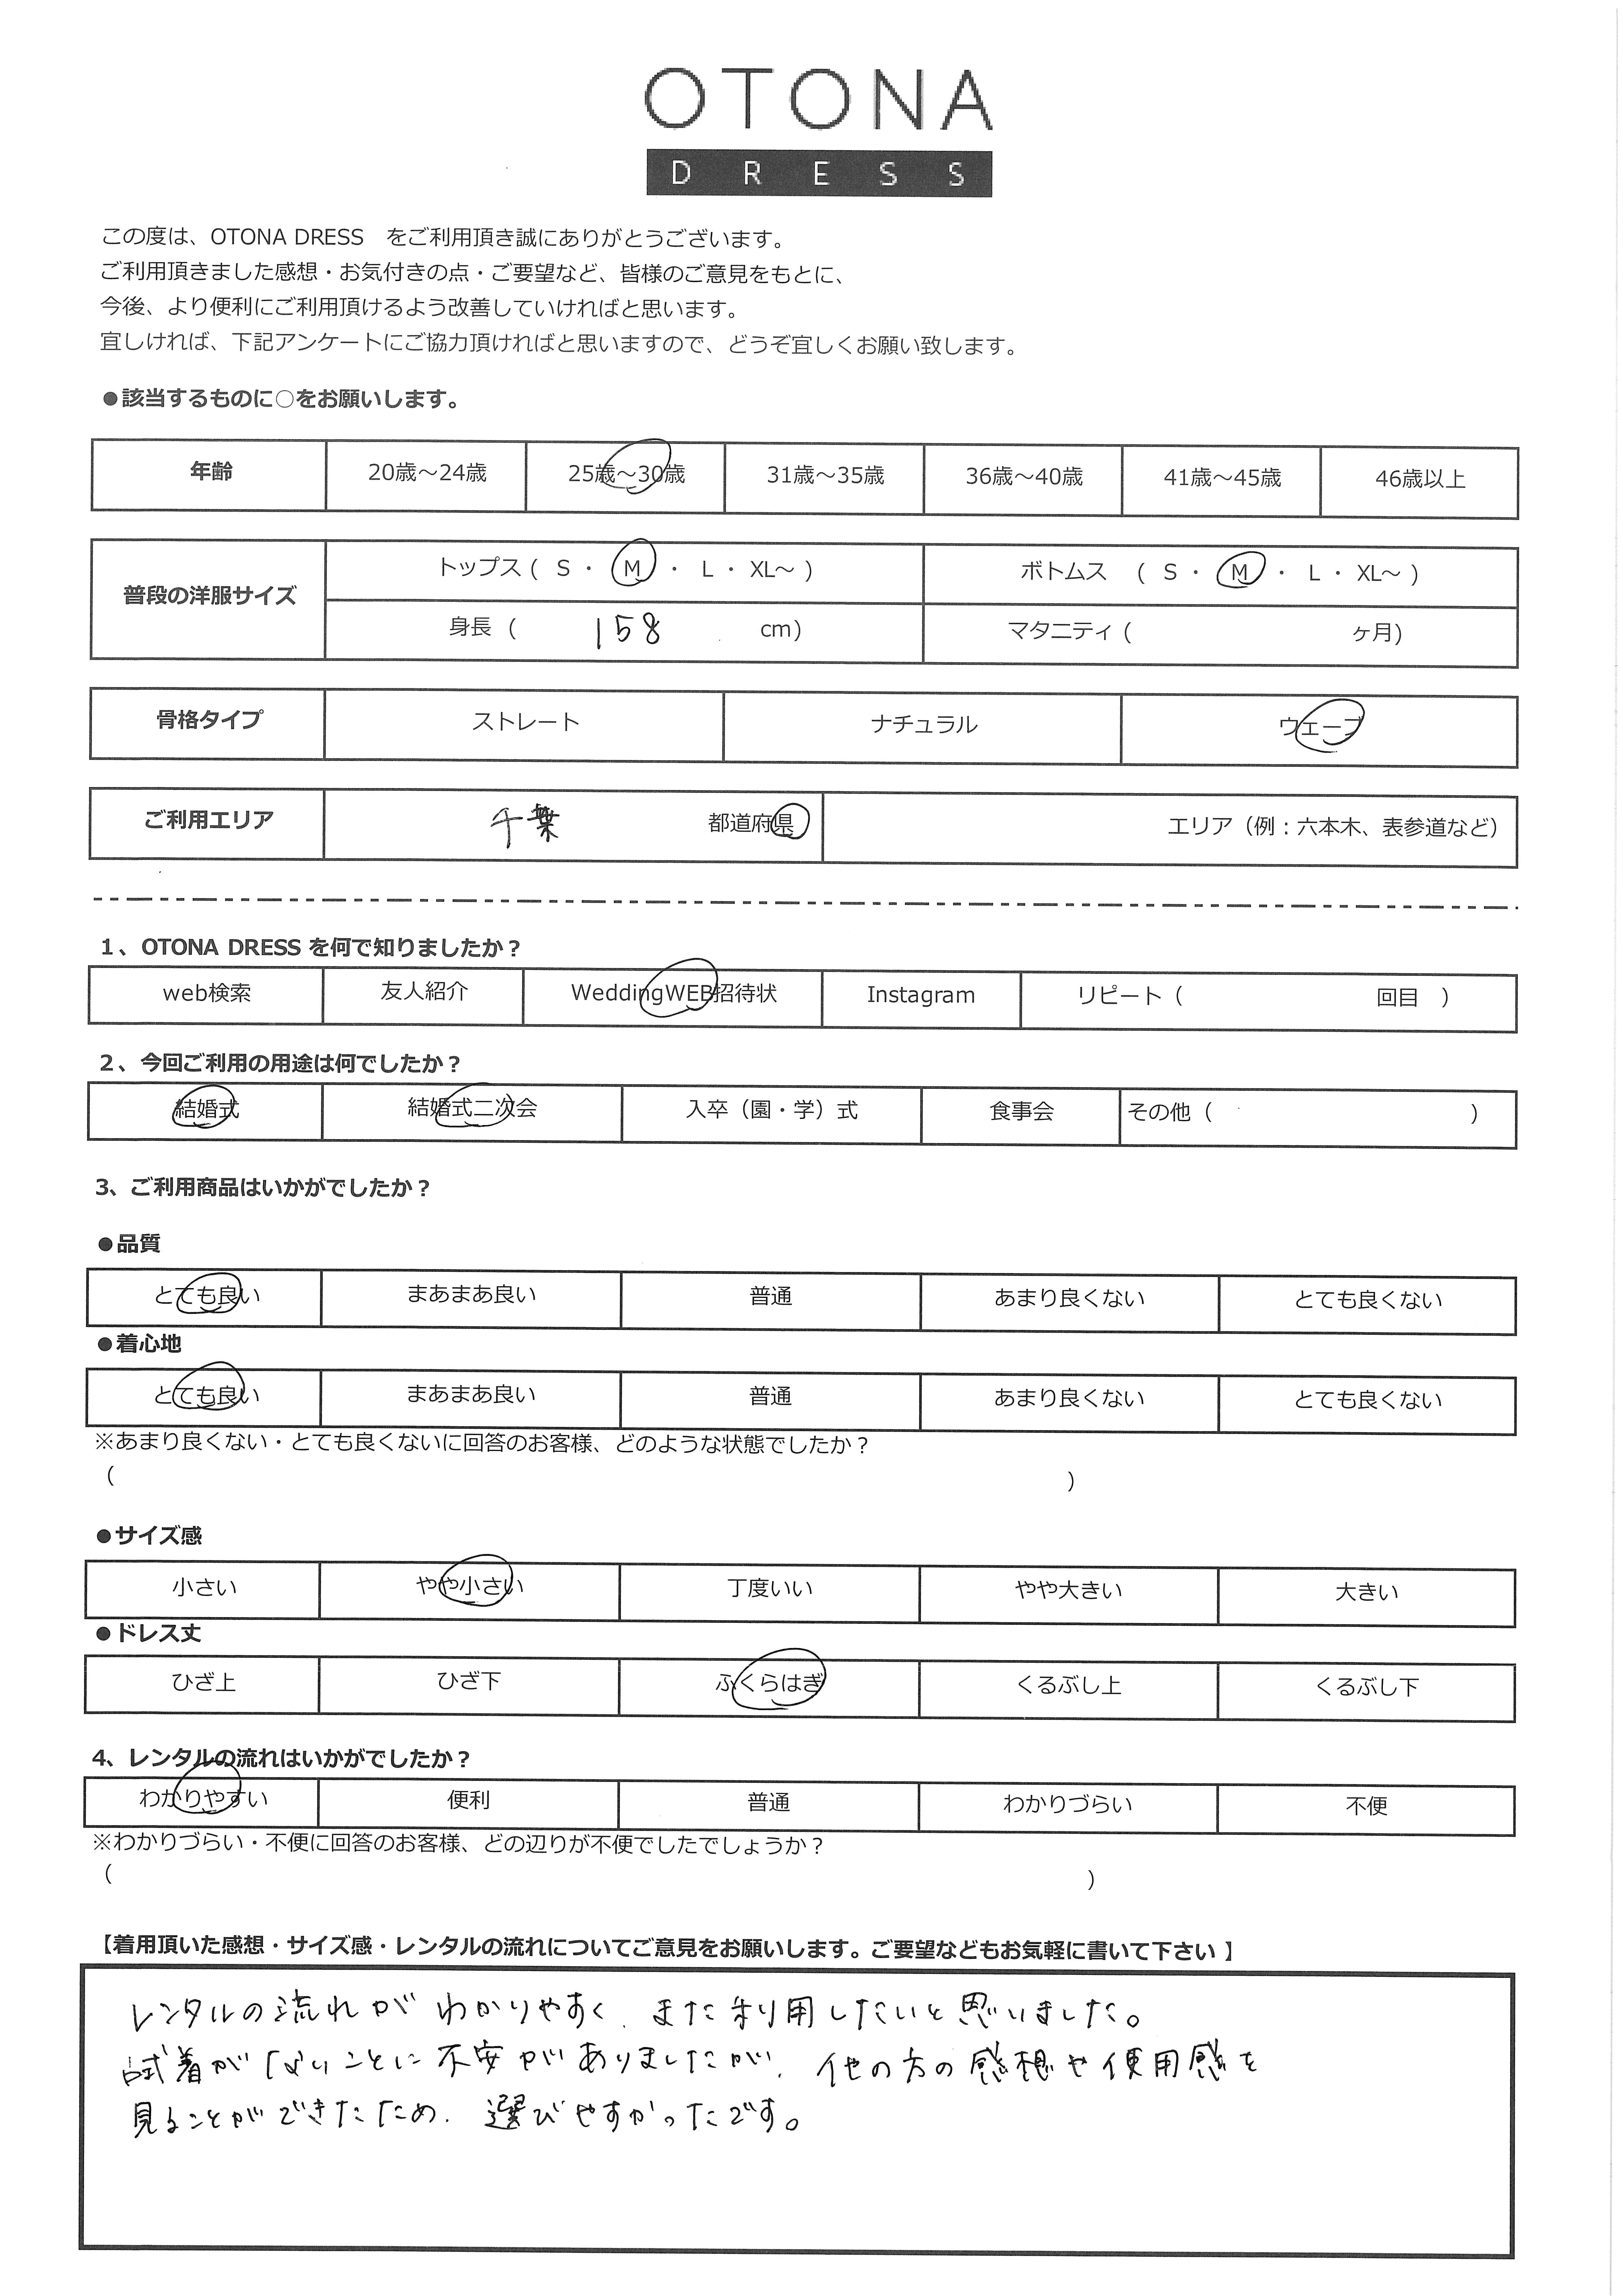 OTONA
DRESS
この度は、OTONA DRESS　をご利用頂き誠にありがとうございます。
ご利用頂きました感想・お気付きの点・ご要望など、皆様のご意見をもとに、
今後、より便利にご利用頂けるよう改善していければと思います。
宜しければ、下記アンケートにご協力頂ければと思いますので、どうぞ宜しくお願い致します。
●該当するものに○をお願いします。
年齢 20歳～24歳 25歳～30歳 31歳～35歳 36歳～40歳 41歳～45歳 46歳以上
普段の洋服サイズ トップス ( S ・ M ・ L ・ XL～ ) ボトムス ( S ・ M ・ L ・ XL～ )
身長 ( 158 cm) マタニティ ( ヶ月)
骨格タイプ ストレート ナチュラル ウェーブ
ご利用エリア 千葉 都道府県 エリア（例：六本木、表参道など）
1、OTONA DRESS を何で知りましたか？
web検索 友人紹介 WeddingWEB招待状 Instagram リピート（ 回目 ）
2、今回ご利用の用途は何でしたか？
結婚式 結婚式二次会 入卒（園・学）式 食事会 その他（ ）
3、ご利用商品はいかがでしたか？
●品質
とても良い まあまあ良い 普通 あまり良くない とても良くない
●着心地
とても良い まあまあ良い 普通 あまり良くない とても良くない
※あまり良くない・とても良くないに回答のお客様、どのような状態でしたか？
（ ）
●サイズ感
小さい やや小さい 丁度いい やや大きい 大きい
●ドレス丈
ひざ上 ひざ下 ふくらはぎ くるぶし上 くるぶし下
4、レンタルの流れはいかがでしたか？
わかりやすい 便利 普通 わかりづらい 不便
※わかりづらい・不便に回答のお客様、どの辺りが不便でしたでしょうか？
（ ）
【着用頂いた感想・サイズ感・レンタルの流れについてご意見をお願いします。ご要望などもお気軽に書いて下さい 】
レンタルの流れがわかりやすく、また利用したいと思いました。
試着がないことに不安がありましたが、他の方の感想や使用感を
見ることができたため、選びやすかったです。